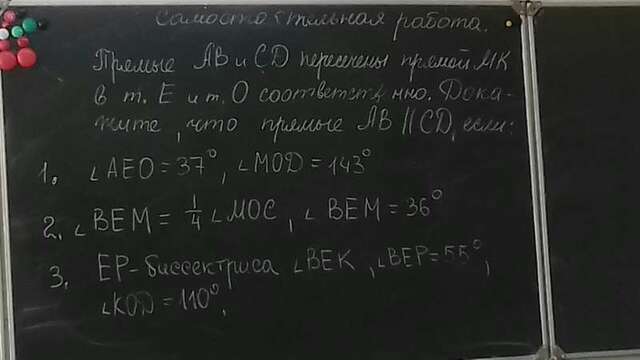 Самостоятельная работа.
Прямые AB и CD пересечены прямой MK
в т. E и т. O соответственно. Дока-
жите, что прямые AB || CD, если:
1. ∠AEO = 37°, ∠MOD = 143°
2. ∠BEM = 1/4 ∠MOC, ∠BEM = 36°
3. EP-биссектриса ∠BEK, ∠BEP = 55°,
∠KOD = 110°,